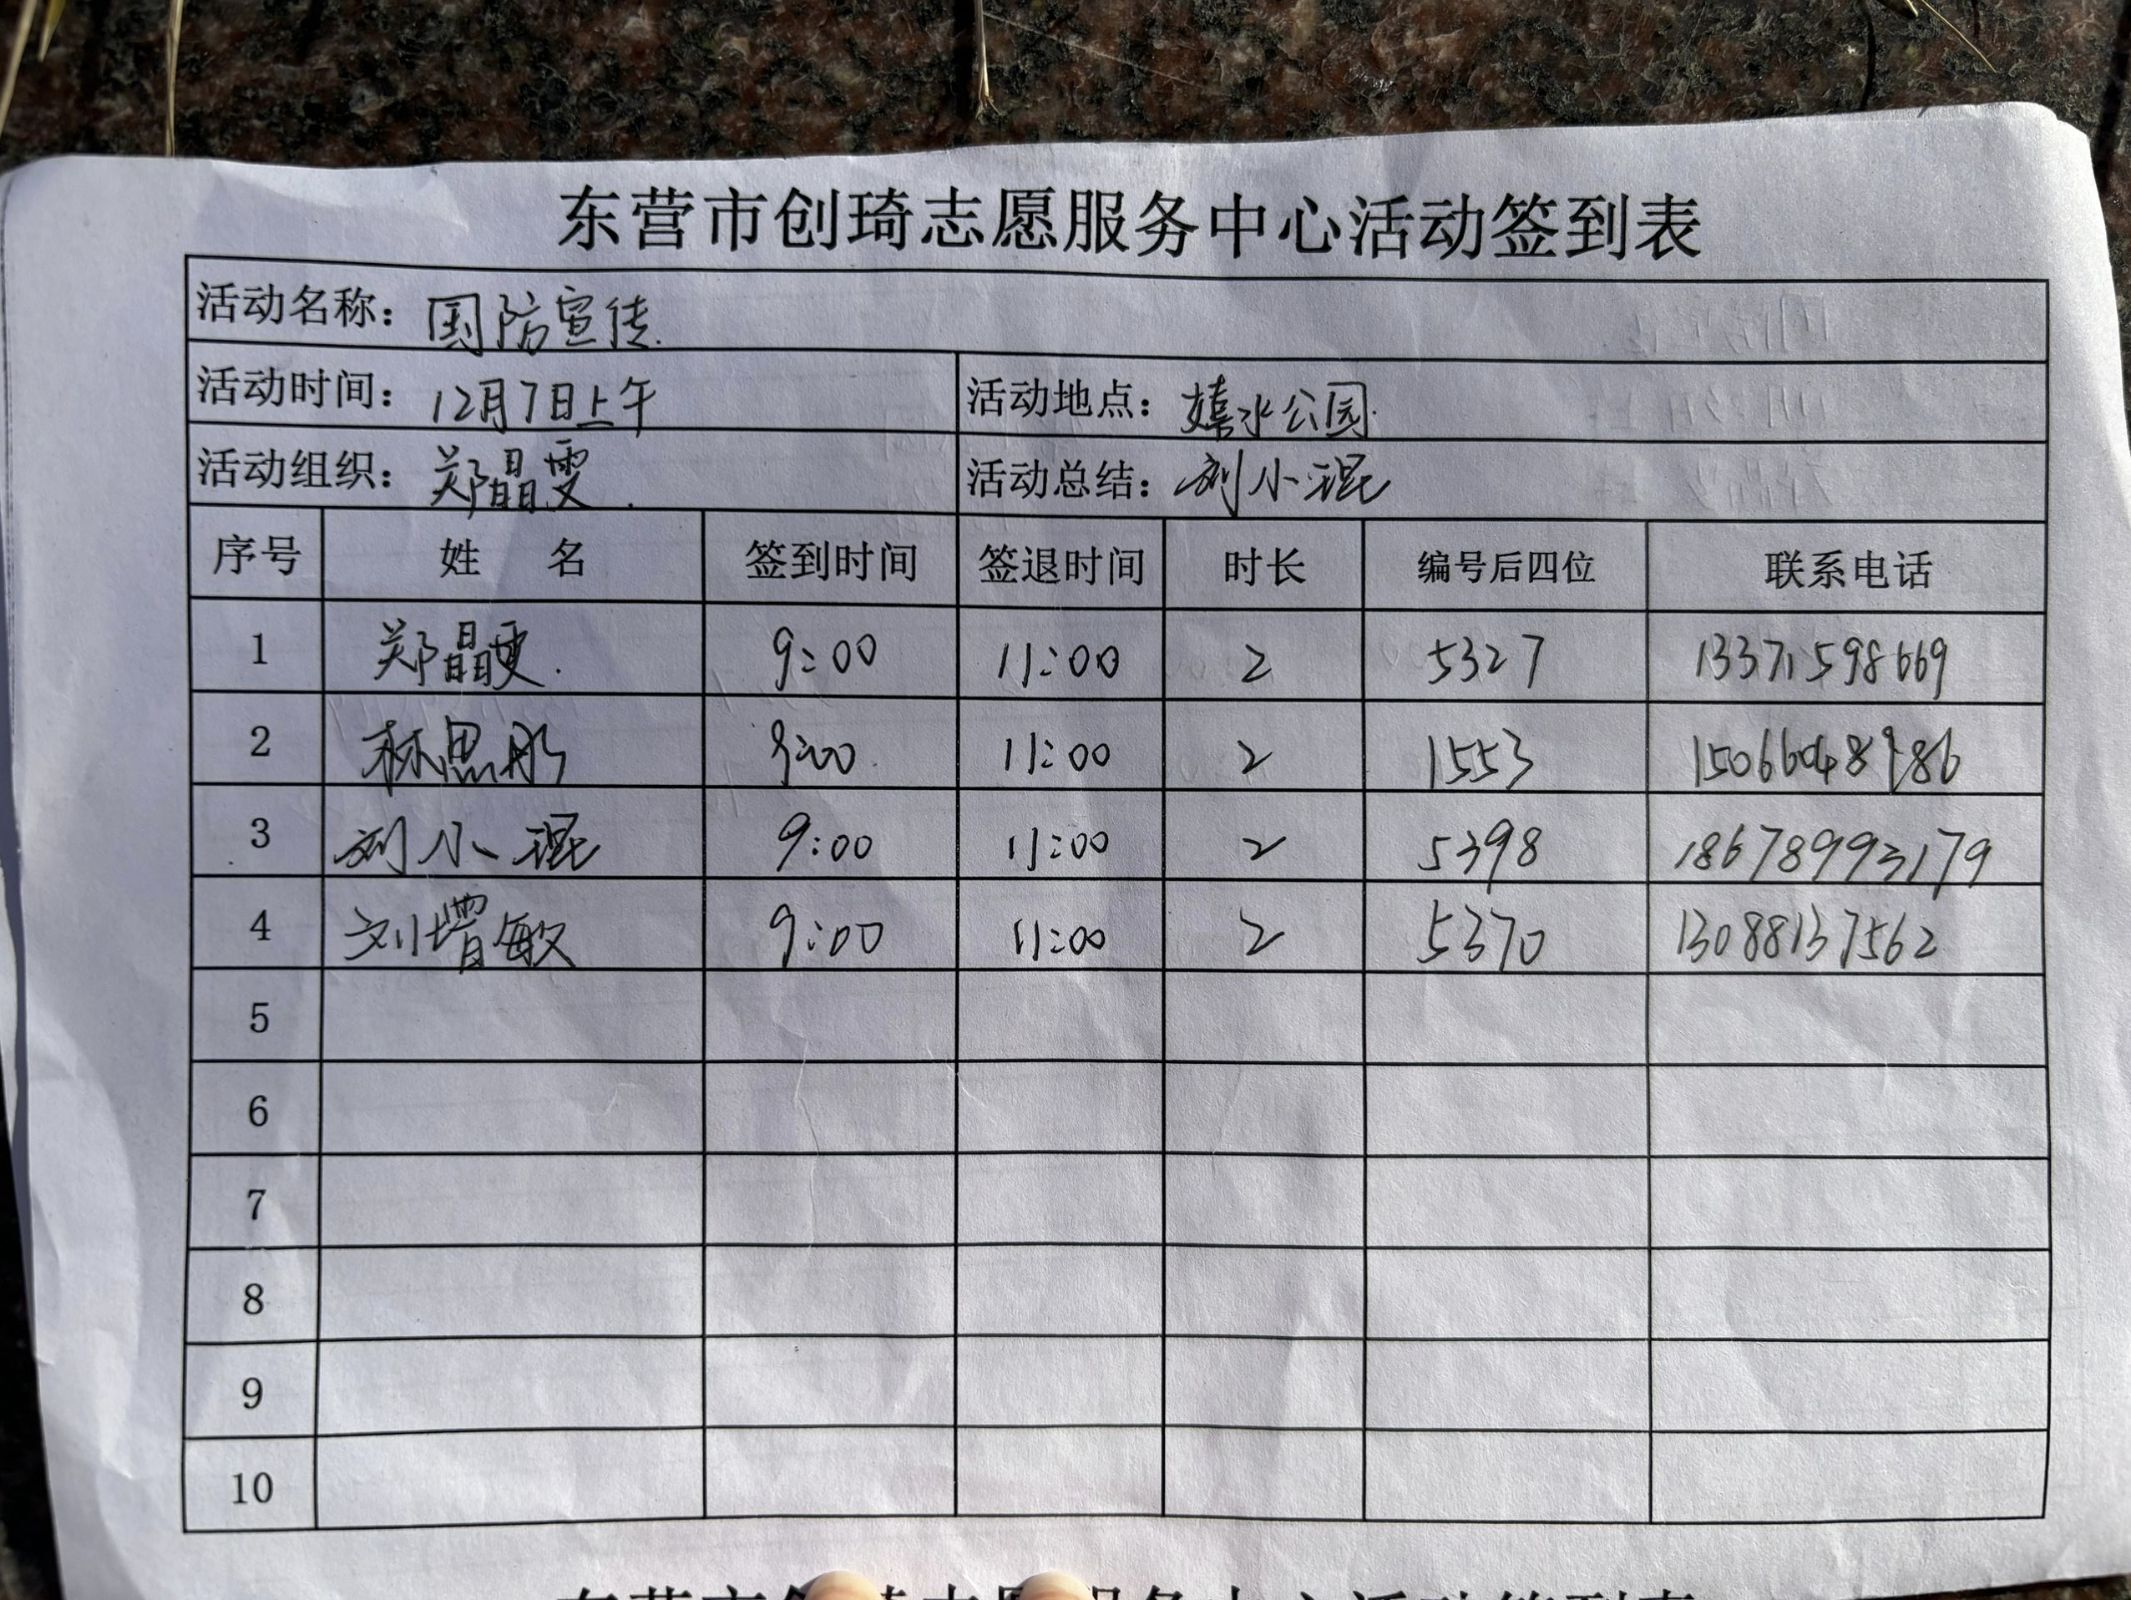 东营市创琦志愿服务中心活动签到表
活动名称：国防宣传
活动时间：12月7日上午 活动地点：嬉水公园
活动组织：郑晶雯 活动总结：刘小琨
序号 姓名 签到时间 签退时间 时长 编号后四位 联系电话
1 郑晶雯 9:00 11:00 2 5327 13371598669
2 林思彤 9:00 11:00 2 1553 15066048986
3 刘小琨 9:00 11:00 2 5398 18678993179
4 刘增敏 9:00 11:00 2 5370 13088137562
5
6
7
8
9
10
东营市创琦志愿服务中心活动签到表